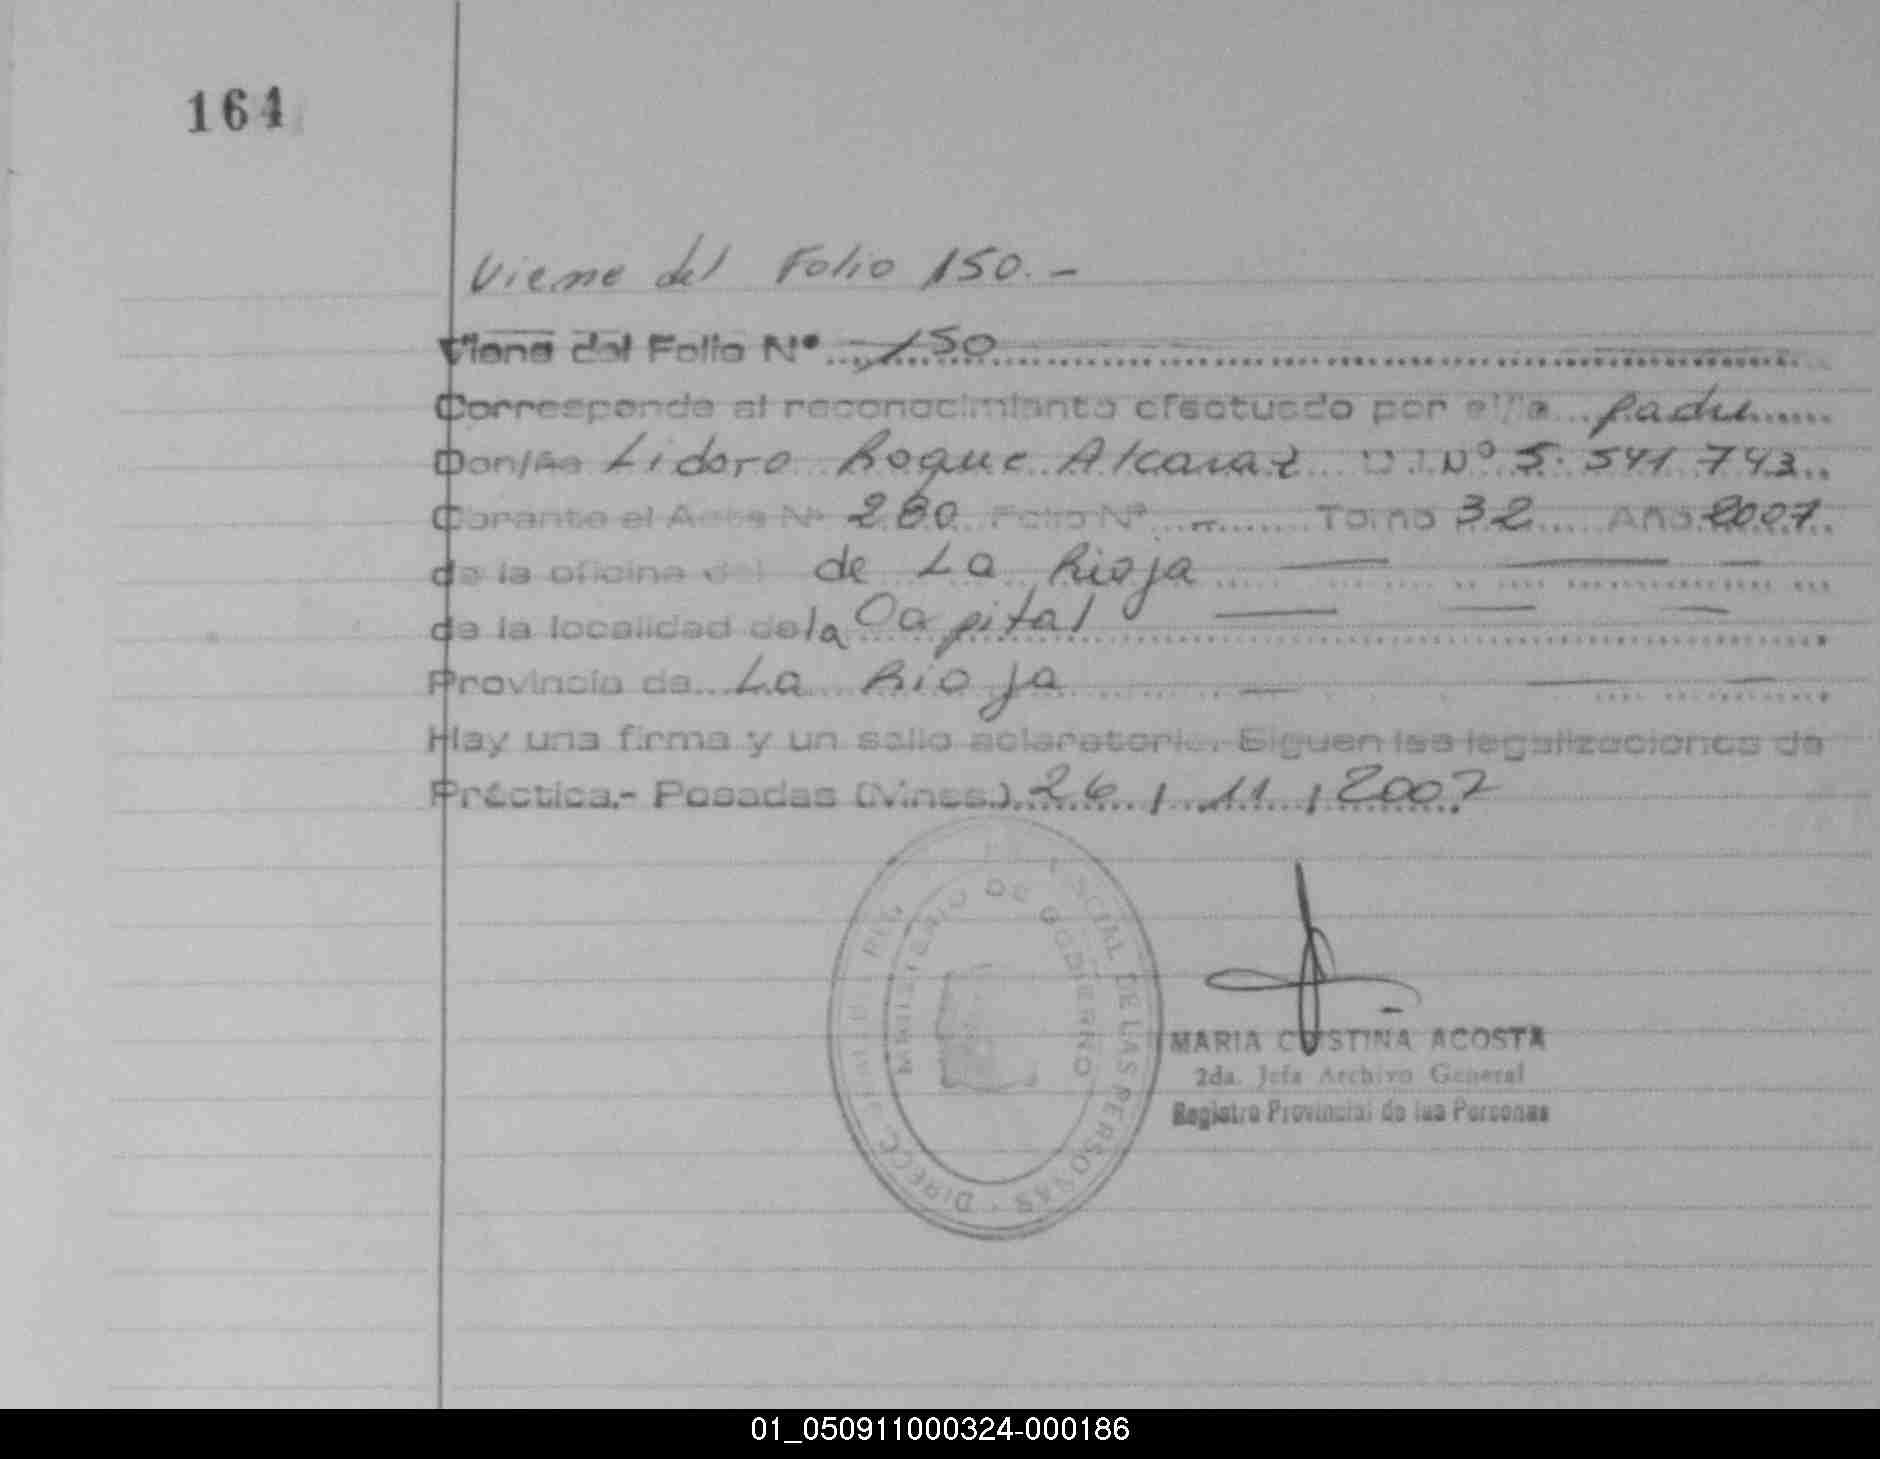 164
Viene del Folio 150.-
Viene del Folio Nº 150
Corresponde al reconocimiento efectuado por el/la padre
Don/ña Lidoro Roque Alcaraz D.I Nº 5.541.743
Corante el Acta Nº 280 Folio Nº - Tomo 32 Año 2007
de la oficina del de La Rioja
de la localidad de la Capital
Provincia de La Rioja
Hay una firma y un sello aclaratorio. Siguen las legalizaciones de
Práctica.- Posadas (Mnes.) 26 / 11 / 2007
MINISTERIO DE GOBIERNO
DE LAS PERSONAS · DIRECC.
MARIA CRISTINA ACOSTA
2da. Jefa Archivo General
Registro Provincial de las Personas
01_050911000324-000186